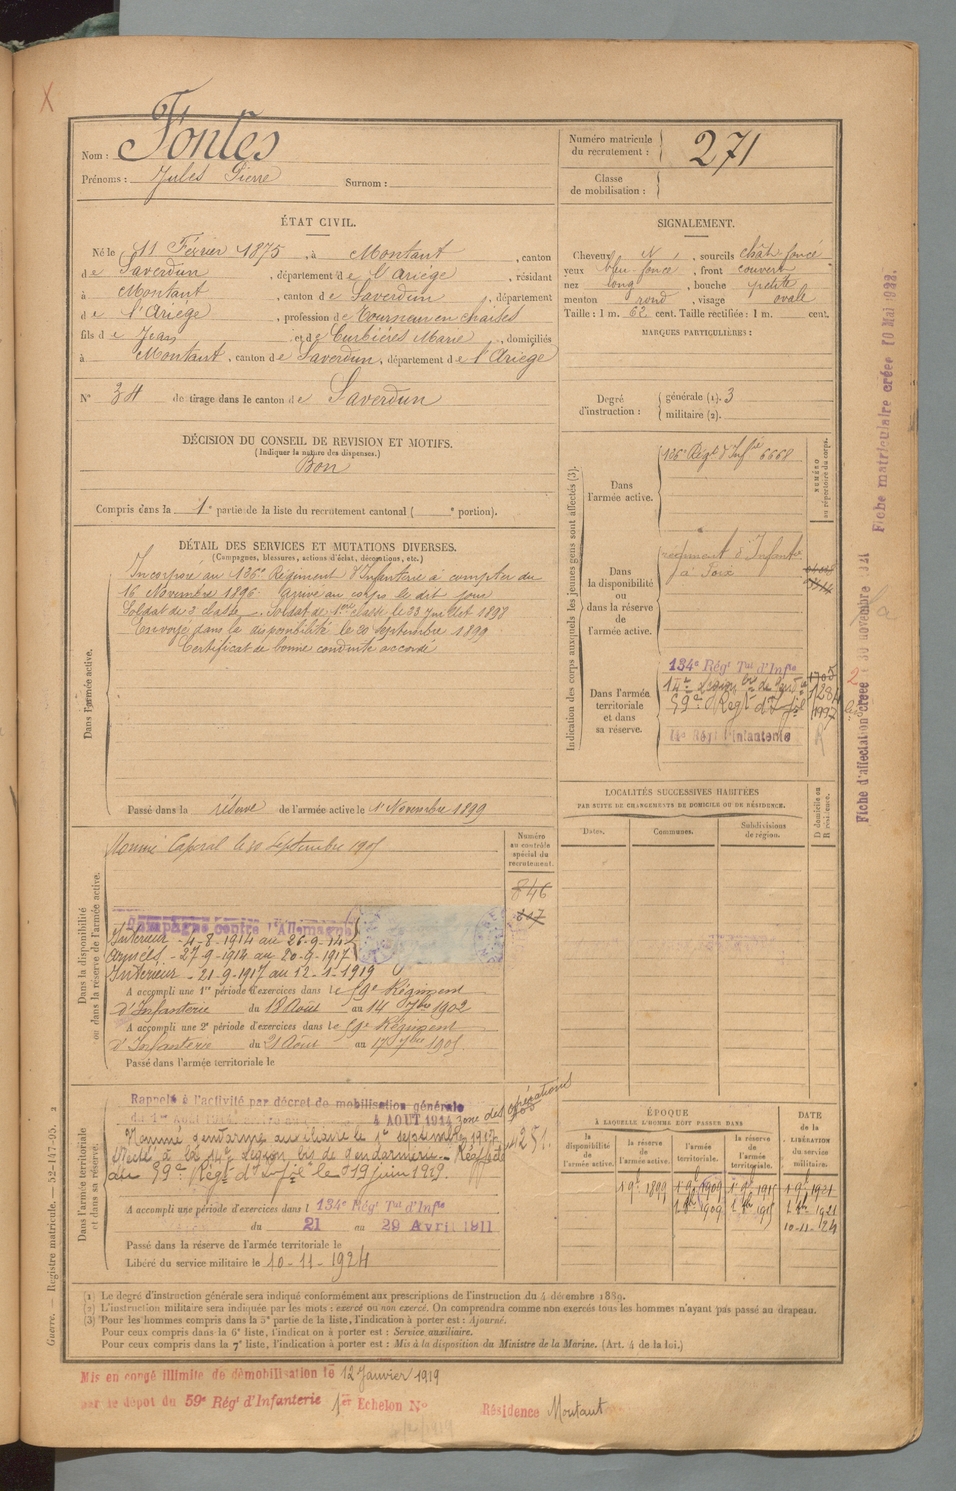 Nom : Fontes
Prénoms : Jules Pierre Surnom :
Numéro matricule du recrutement : 271
Classe de mobilisation :
ÉTAT CIVIL.
Né le 11 Février 1875, à Montaut, canton
de Saverdun, département de l'Ariège, résidant
à Montaut, canton de Saverdun, département
de l'Ariège, profession de Tourneur en chaises
fils de Jean et de Curbières Marie, domiciliés
à Montaut, canton de Saverdun, département de l'Ariège
N° 34 de tirage dans le canton de Saverdun
SIGNALEMENT.
Cheveux N, sourcils chât foncé
yeux bleu foncé, front couvert
nez long, bouche petite
menton rond, visage ovale
Taille : 1 m. 62 cent. Taille rectifiée : 1 m. cent.
MARQUES PARTICULIÈRES :
Degré d'instruction : générale (1). 3
militaire (2).
DÉCISION DU CONSEIL DE REVISION ET MOTIFS.
(Indiquer la nature des dispenses.)
Bon
Compris dans la 1e partie de la liste du recrutement cantonal ( e portion).
DÉTAIL DES SERVICES ET MUTATIONS DIVERSES.
(Campagnes, blessures, actions d'éclat, décorations, etc.)
Dans l'armée active.
Incorporé au 126e Régiment d'Infanterie à compter du
16 Novembre 1896. Arrivé au corps le dit jour
Soldat de 2 classe. Soldat de 1ère classe le
Envoyé dans la disponibilité le 20 septembre 1899
Certificat de bonne conduite accordé
Passé dans la réserve de l'armée active le 1 Novembre 1899
Indication des corps auxquels les jeunes gens sont affectés (3).
NUMÉRO au répertoire du corps.
Dans l'armée active.
126e Régt d'Inftie 6668
Dans la disponibilité ou dans la réserve de l'armée active.
régiment d'Infantie
à Foix
Dans l'armée territoriale et dans sa réserve.
134e Régt Tal d'Infie
59e Régt d'Infie
Régt d'Infanterie
LOCALITÉS SUCCESSIVES HABITÉES
PAR SUITE DE CHANGEMENTS DE DOMICILE OU DE RÉSIDENCE.
Dates. Communes. Subdivisions de région.
D domicile ou R résidence.
Dans la disponibilité ou dans la réserve de l'armée active.
Numéro au contrôle spécial du recrutement.
Nommé Caporal le
846
Campagne contre l'Allemagne
Intérieur - 4-8-1914 au 26-9-14
Armées - 27-9-1914 au 20-9-1917
Intérieur - 21-9-1917 au 12-1-1919
A accompli une 1re période d'exercices dans le 59e Régiment
d'Infanterie du 18 Août au 14 7bre 1902
A accompli une 2e période d'exercices dans le 59e Régiment
d'Infanterie du 21 Août au 17 7bre 1905
Passé dans l'armée territoriale le
Dans l'armée territoriale et dans sa réserve.
Rappelé à l'activité par décret de mobilisation générale
4 AOUT 1914 zone des opérations
Nommé gendarme auxiliaire le 1er septembre 1917
à la 14e Légion bis de gendarmerie. Réaffecté
au 59e Régt d'Infie le 19 juin 1919.
A accompli une période d'exercices dans l 134e Régt Tal d'Infie
du 21 au 29 Avril 1911
Passé dans la réserve de l'armée territoriale le
Libéré du service militaire le 10-11-1924
ÉPOQUE
À LAQUELLE L'HOMME DOIT PASSER DANS
la disponibilité de l'armée active. la réserve de l'armée active. l'armée territoriale. la réserve de l'armée territoriale.
DATE de la LIBÉRATION du service militaire.
10-11-24
(1) Le degré d'instruction générale sera indiqué conformément aux prescriptions de l'instruction du 4 décembre 1889.
(2) L'instruction militaire sera indiquée par les mots : exercé ou non exercé. On comprendra comme non exercés tous les hommes n'ayant pas passé au drapeau.
(3) Pour les hommes compris dans la 5e partie de la liste, l'indication à porter est : Ajourné.
Pour ceux compris dans la 6e liste, l'indication à porter est : Service auxiliaire.
Pour ceux compris dans la 7e liste, l'indication à porter est : Mis à la disposition du Ministre de la Marine. (Art. 4 de la loi.)
Mis en congé illimité de démobilisation le 12 Janvier 1919
par le dépot du 59e Régt d'Infanterie 1er Echelon N°
Résidence Montaut
Guerre. — Registre matricule. — 52-147-95.
Fiche matriculaire créée 10 Mai 1922.
Fiche d'affectation créée 30 novembre